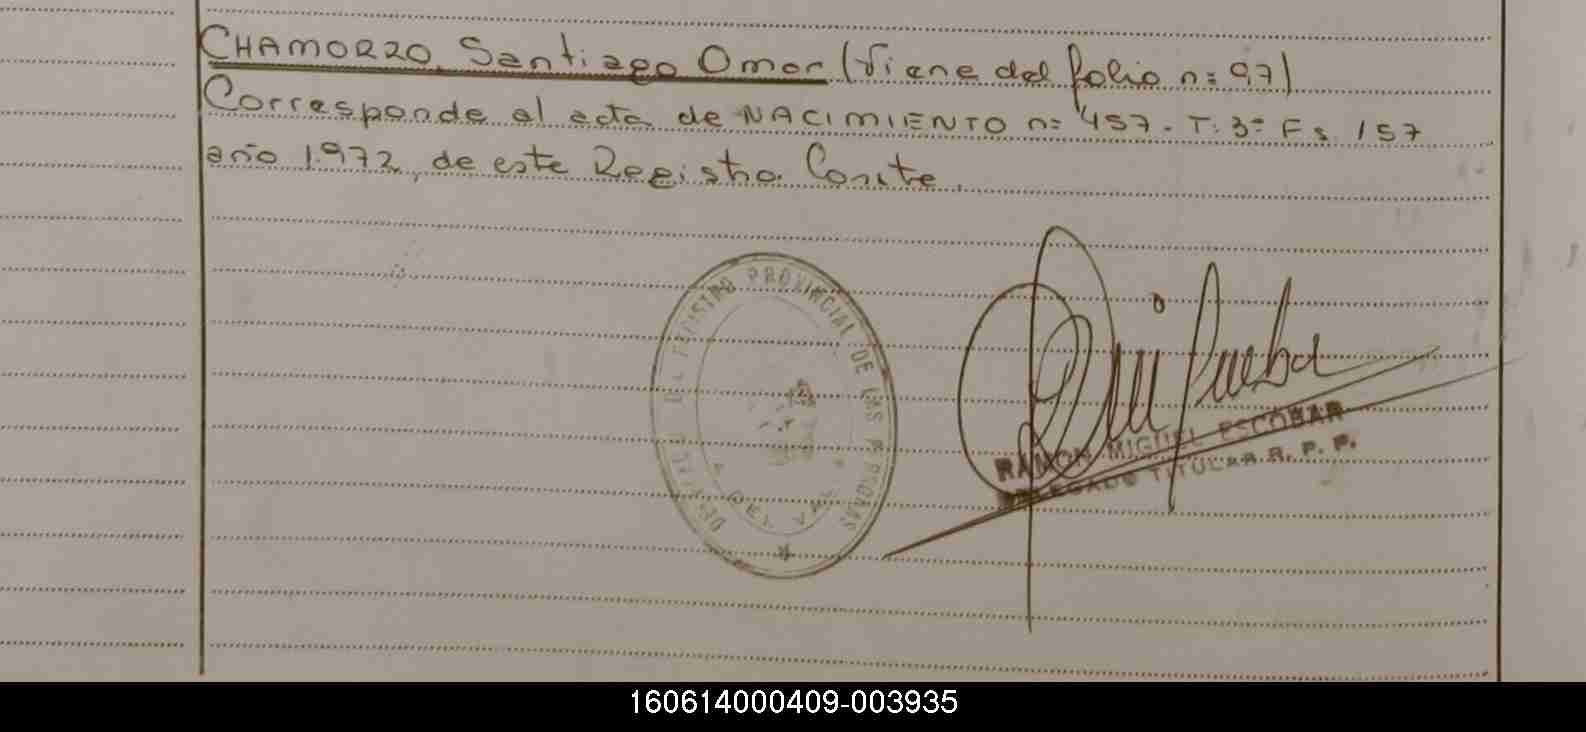 CHAMORRO, Santiago Omar (Viene del folio n= 97)
Corresponde al acta de NACIMIENTO n= 457 - T: 3= Fs. 157
año 1972, de este Registro. Conste.
DEL REGISTRO PROVINCIAL DE LAS PERSONAS
DEL VAL
RAMON MIGUEL ESCOBAR
DELEGADO TITULAR R. P. P.
160614000409-003935